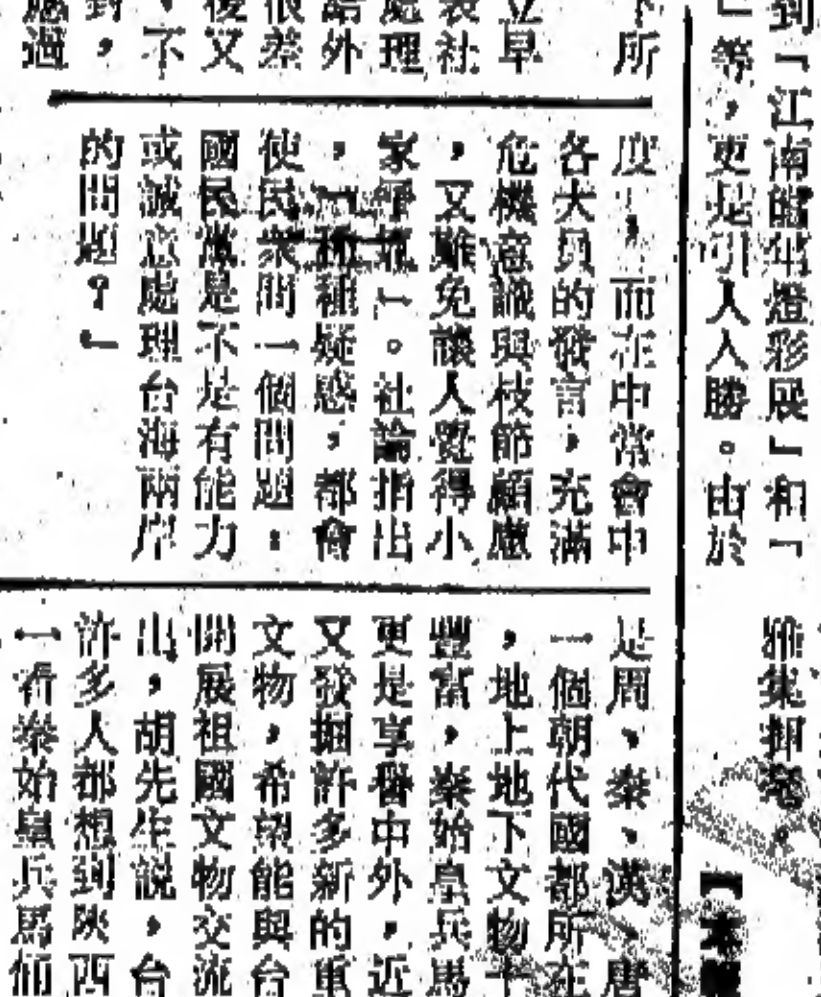 到「江南年燈彩展」和「
」等,更是引人入勝。由於
雅集揮毫。
【本
下所
立早
表社
處理
給外
很差
後又
,不
對,
應過
度」,而在中常會中
各大員的發言,充滿
危機意識與枝節顧慮
,又難免讓人覺得小
家氣」。社論指出
,「種種疑惑,都會
使民眾問一個問題:
國民黨是不是有能力
或誠意處理台海兩岸
的問題?」
是周、秦、漢、唐
一個朝代國都所在
,地上地下文物十
豐富,秦始皇兵馬
更是享譽中外,近
又發掘許多新的重
文物,希望能與台
開展祖國文物交流
出,胡先生說,台
許多人都想到陝西
一看秦始皇兵馬俑